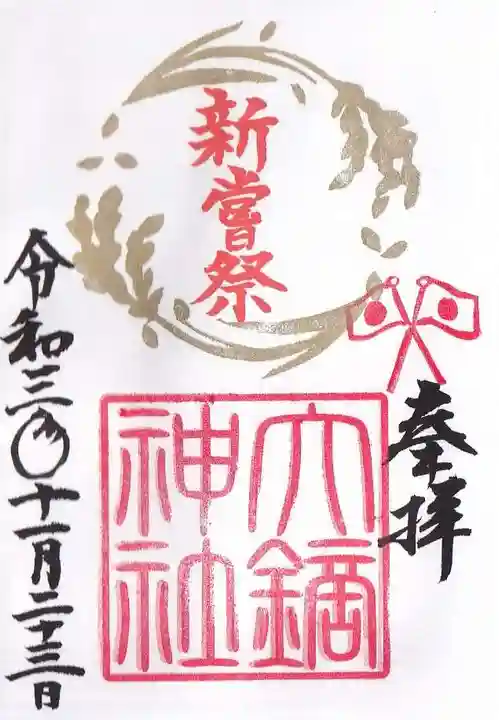 奉拝
新嘗祭
大鏑
神社
令和三年十一月二十三日